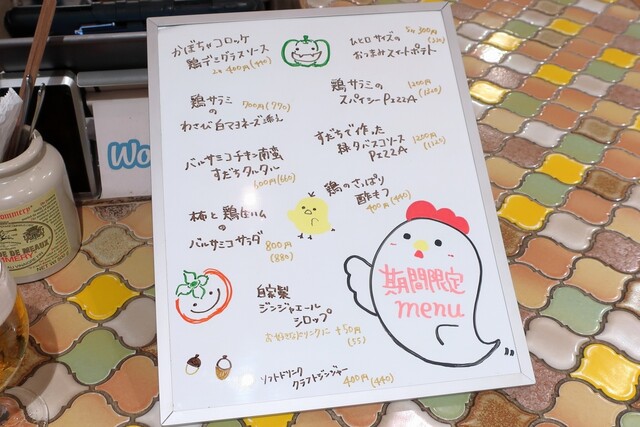 かぼちゃコロッケ
鶏デミグラスソース
2ヶ 400円(440)
ひと口サイズの
おつまみスイートポテト
5ヶ 300円
(330)
鶏サラミ
の
わさび白マヨネーズ添え
700円(770)
鶏サラミの
スパイシーPIZZA
1200円
バルサミコチキン南蛮
すだちタルタル
600円(660)
すだちで作った
緑タバスコソース
PIZZA
1200円
(1320)
鶏のさっぱり
酢もつ
400円(440)
柿と鶏生ハム
の
バルサミコサラダ
800円
(880)
自家製
ジンジャエール
シロップ
お好きなドリンクに +50円
(55)
ソフトドリンク
クラフトジンジャー
400円(440)
期間限定
menu
Wo
DE MEAUX